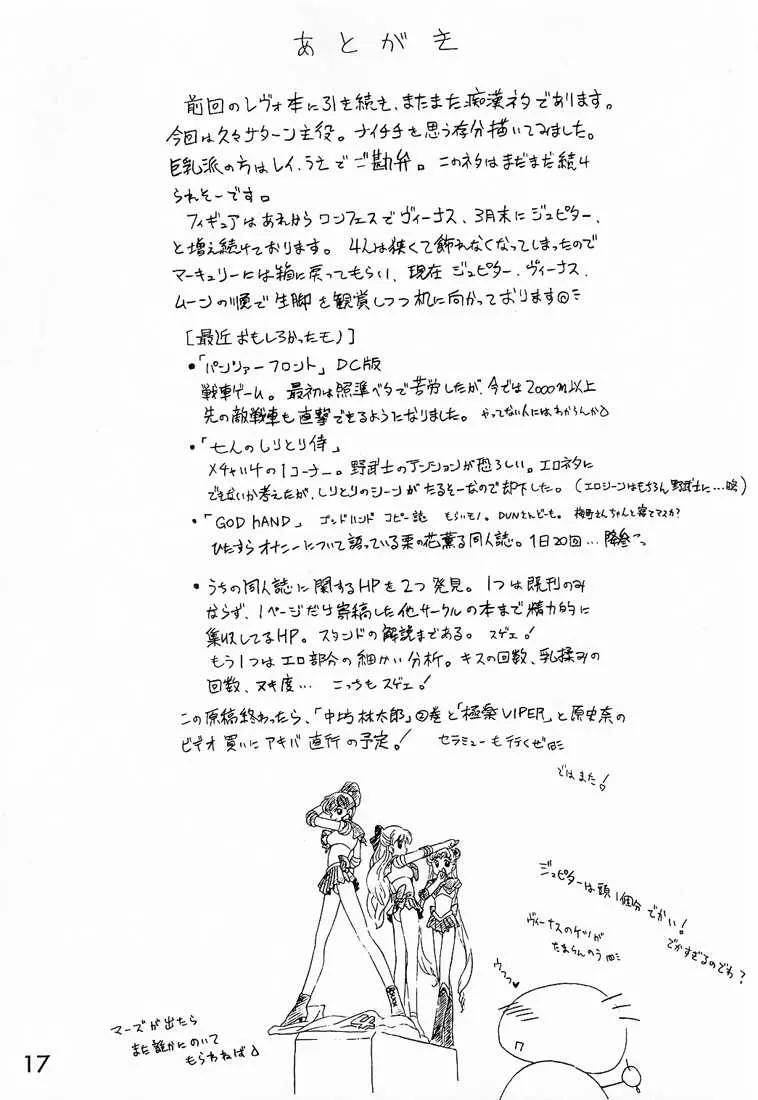 あとがき
前回のレヴォ本に引き続き、またまた痴漢ネタであります。
今回は久々サターン主役。ナイチチを思う存分描いてみました。
巨乳派の方はレイ、うえでご勘弁。このネタはまだまだ続け
られそーです。
フィギュアはあれからワンフェスでヴィーナス、3月末にジュピター、
と増え続けております。4人は狭くて飾れなくなってしまったので
マーキュリーには箱に戻ってもらい、現在ジュピター、ヴィーナス、
ムーンの順で生脚を観賞しつつ机に向かっております
[最近おもしろかったモノ]
•「パンツァーフロント」DC版
戦車ゲーム。最初は照準ベタで苦労したが、今では2000m以上
先の敵戦車も直撃できるようになりました。やってない人にはわからんか
•「七人のしりとり侍」
メチャイケの1コーナー。野武士のテンションが恐ろしい。エロネタに
できないか考えたが、しりとりのシーンがたるそーなので却下した。(エロシーンはもちろん野武士に…略)
•「GOD HAND」ゴッドハンド コピー誌 もらいモノ。DUNさんどーも。梅野さんちゃんと寝てマスか?
ひたすらオナニーについて語っている栗の花薫る同人誌。1日20回…降参
• うちの同人誌に関するHPを2つ発見。1つは既刊のみ
ならず、1ページだけ寄稿した他サークルの本まで精力的に
集収してるHP。スタンドの解説まである。スゲェ!
もう1つはエロ部分の細かい分析。キスの回数、乳揉みの
回数、ヌキ度…こっちもスゲェ!
この原稿終わったら、「中坊林太郎」②巻と「極楽VIPER」と原史奈の
ビデオ買いにアキバ直行の予定!セラミューも行くぜ
ではまた!
ジュピターは頭1個分でかい!
でかすぎるのでわ?
ヴィーナスのケツが
たまらんのう
ウっっ
マーズが出たら
また誰かにのいて
もらわねば
17